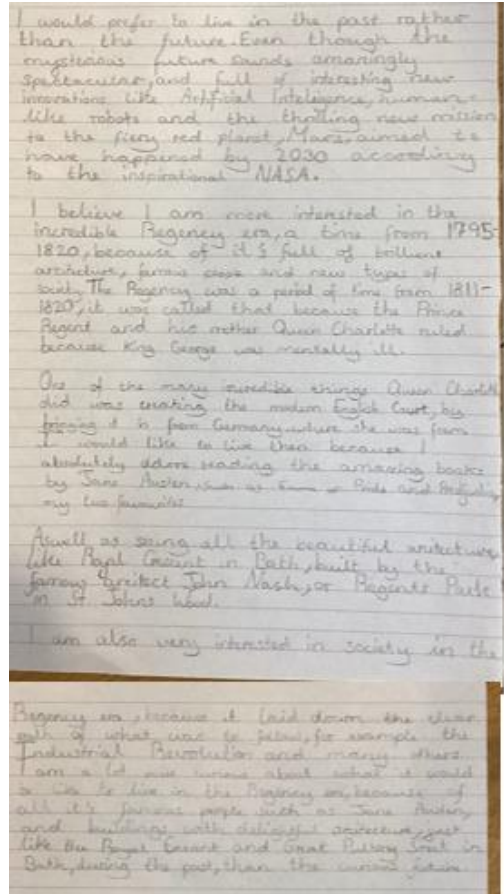 I would prefer to live in the past rather
than the future. Even though the
mysterious future sounds amazingly
spectacular, and full of interesting new
innovations like Artificial Intelegence, human-
like robots and the thrilling new mission
to the fiery red planet, Mars, aimed to
have happened by 2030 according
to the inspirational NASA.
I believe I am more interested in the
incredible Regency era, a time from 1795-
1820, because of it's full of brilliant
architecture, famous and new types of
society. The Regency was a period of time from 1811-
1820, it was called that because the Prince
Regent and his mother Queen Charlotte ruled
because King George was mentally ill.
One of the many incredible things Queen Charlotte
did was creating the modern English Court, by
bringing it in from Germany, where she was from
I would like to live then because I
absolutely adore reading the amazing books
by Jane Austen, such as Emma or Pride and Prejudice
my two favourites
Aswell as seing all the beautiful
like Royal Cresent in Bath, built by the
famous John Nash, or Regents Park
in St. Johns Wood.
I am also very interested in society in the
Regency era, because it laid down the clear
path of what was to follow, for example the
Industrial Revolution and many others.
I am a lot more curious about what it would
be like to live in the Regency era, because of
all it's famous people such as Jane Austen,
and buildings with delightful just
like the Royal Cresent and Great Street in
Bath, during the past, than the curious future